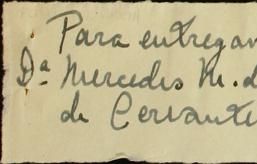 Para entregar
Dª Mercedes M. d
de Cervante